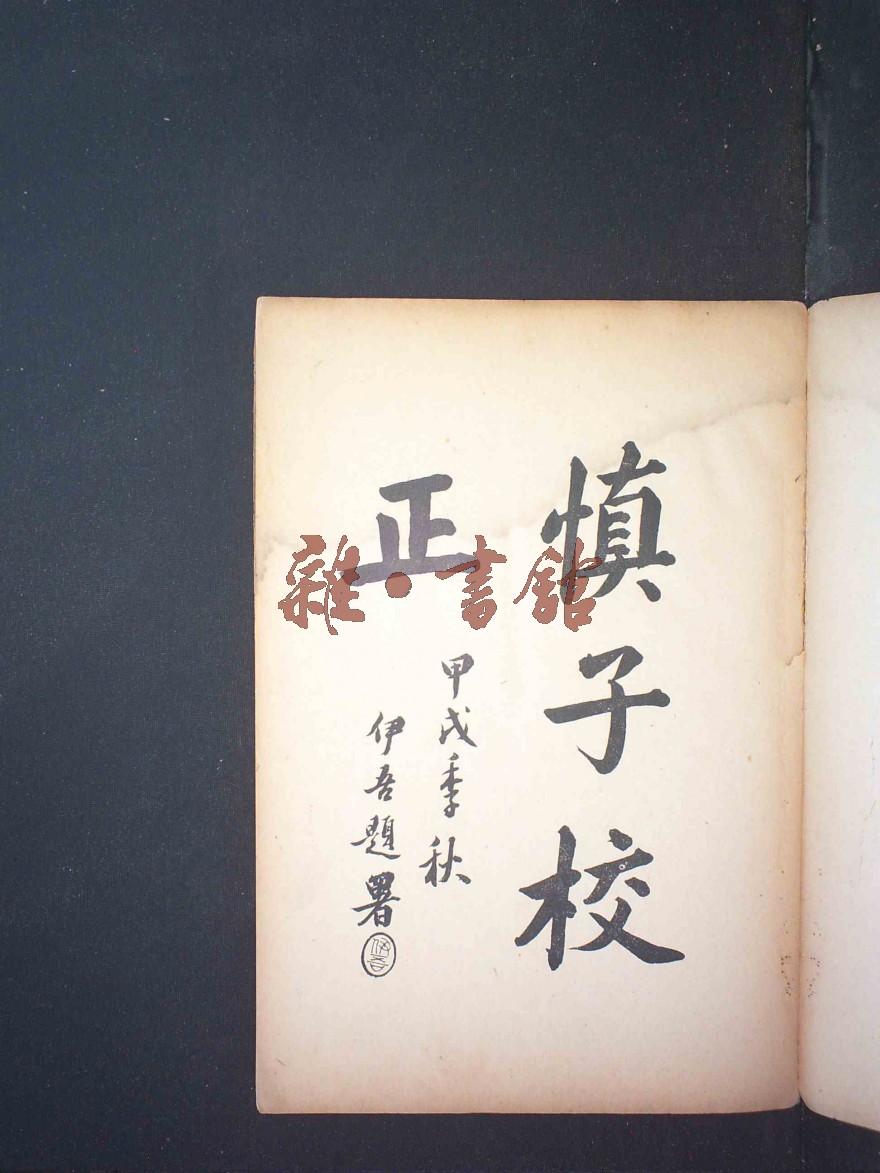 慎子校
正
甲戌季秋
伊吾題署
伊吾
雜·書館